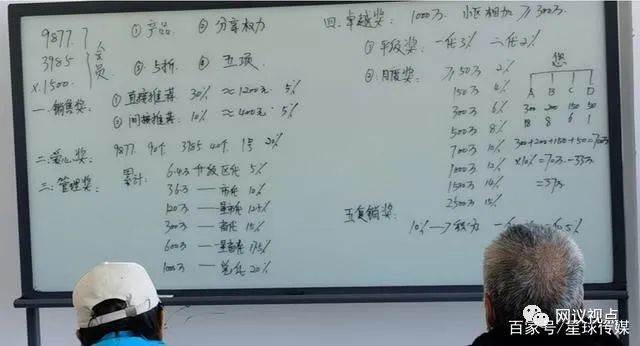 9877.7
3985
x.1500
会员
① 产品 ② 分享权力
③ 5折 ④ 五项
一.销售奖:
① 直接推荐 30% ≈1200元. 5%
② 间接推荐: 10% ≈400元. 5%
二.爱心奖:
9877. 90个 3985 40个 1号 20%
三.管理奖:
累计:
6.4万 5%
36万 — 市代 10%
120万 — 12.5%
300万 — 省代 15%
600万 — 17.5%
1000万 — 20%
四.卓越奖: 1000万 小区相加 ≥300万
① 年级奖: 一代3% 二代2%
② 月度奖: ≥50万 2%
150万 4%
300万 6%
500万 8%
700万 10%
1000万 12%
1500万 14%
2500万 15%
您
A B C D
300 200 150 50
18 8 6 1
300+200+150+50=700万
×10%=70万-33万
=37万
五.复销奖:
10% → 积分
网议视点
百家号/星球传媒